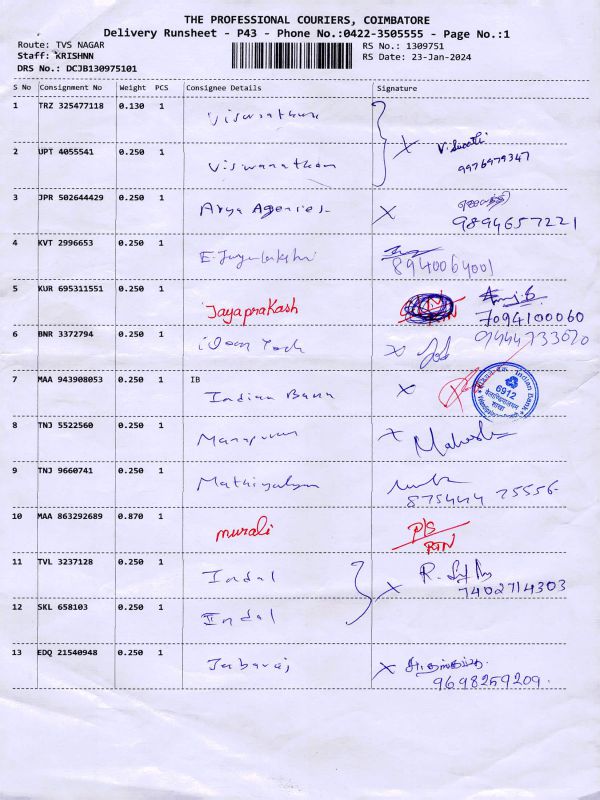 THE PROFESSIONAL COURIERS, COIMBATORE
Delivery Runsheet - P43 - Phone No.:0422-3505555 - Page No.:1
Route: TVS NAGAR RS No.: 1309751
Staff: KRISHNN RS Date: 23-Jan-2024
DRS No.: DCJB130975101
S No Consignment No Weight PCS Consignee Details Signature
1 TRZ 325477118 0.130 1 Viswanathan
V. Sumathi
2 UPT 4055541 0.250 1 Viswanathan 9976979347
3 JPR 502644429 0.250 1 Arya Agencies. X 9894657221
4 KVT 2996653 0.250 1 E. Jayalakshmi 8940064001
5 KUR 695311551 0.250 1 Jayaprakash 7094100060
6 BNR 3372794 0.250 1 X 9444733020
7 MAA 943908053 0.250 1 IB
Indian Bank X 6912 Indian Bank
8 TNJ 5522560 0.250 1 X Mahesh
9 TNJ 9660741 0.250 1 Mathiyalagan 875444 25556
10 MAA 863292689 0.870 1 murali P/S
RTN
11 TVL 3237128 0.250 1 Indal X 7402714303
12 SKL 658103 0.250 1 Indal
13 EDQ 21540948 0.250 1 Jabaraj X 9698259209.